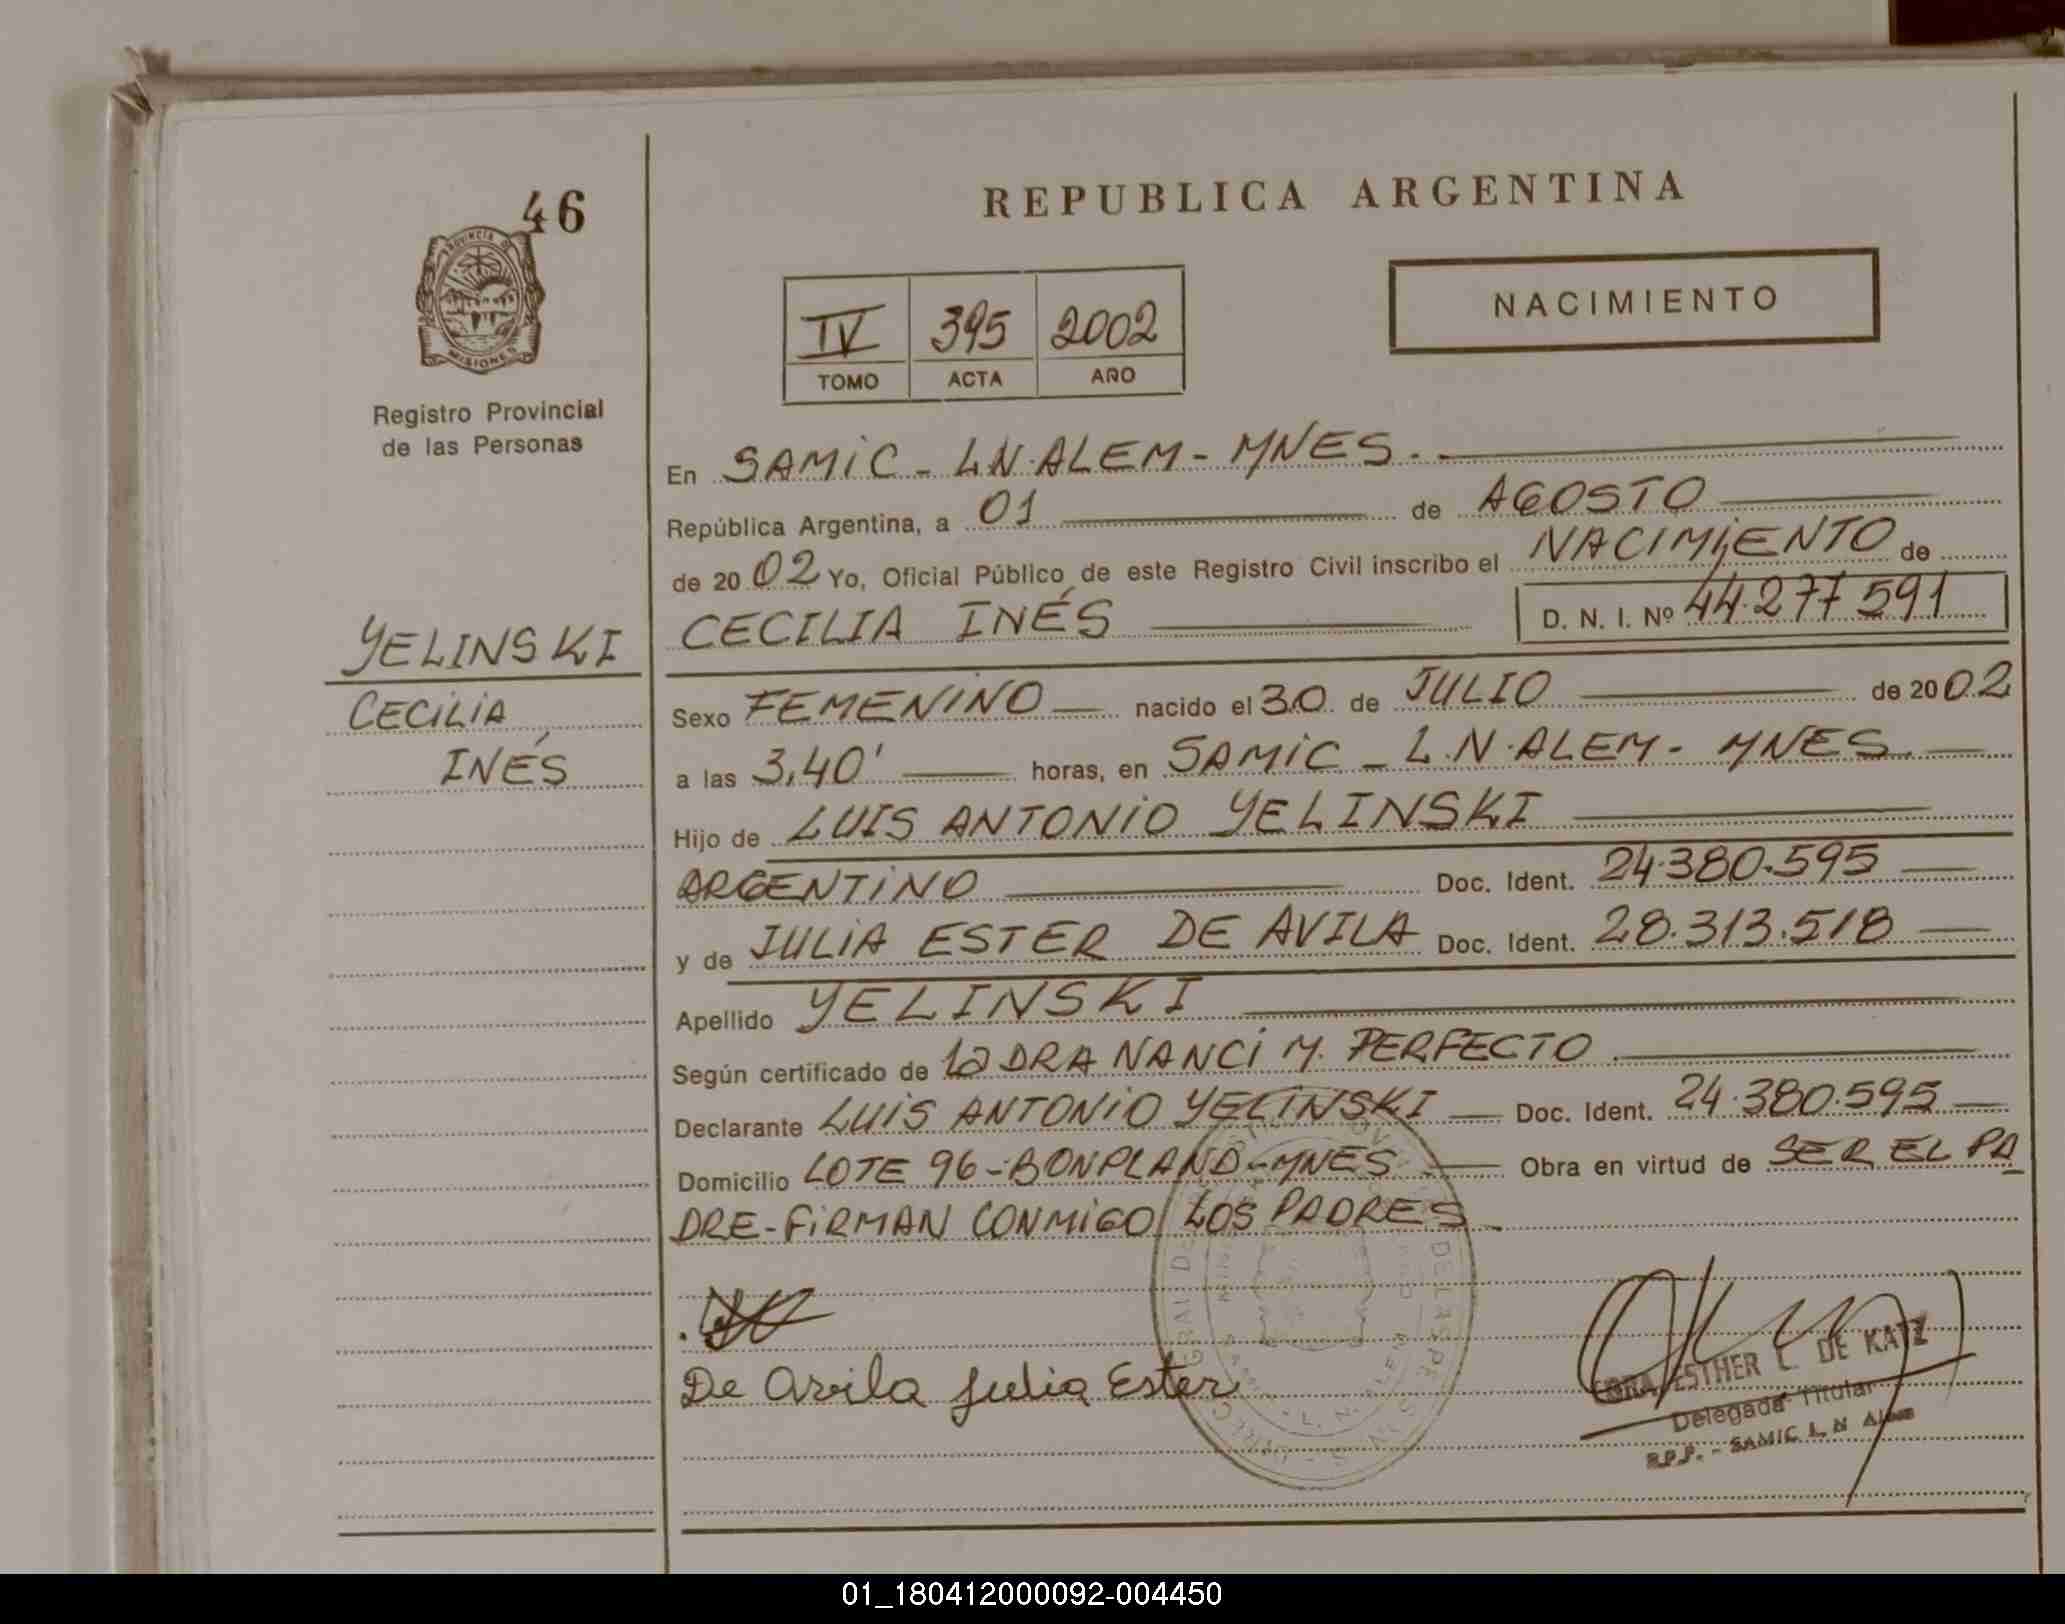 46
PROVINCIA DE
MISIONES
Registro Provincial
de las Personas
REPUBLICA ARGENTINA
NACIMIENTO
IV 395 2002
TOMO ACTA AÑO
En SAMIC - L.N. ALEM - MNES.
República Argentina, a 01 de AGOSTO
de 2002 Yo, Oficial Público de este Registro Civil inscribo el NACIMIENTO de
CECILIA INÉS D. N. I. Nº 44.277 591
YELINSKI
CECILIA
INÉS
Sexo FEMENINO nacido el 30 de JULIO de 2002
a las 3,40' horas, en SAMIC - L.N. ALEM - MNES.
Hijo de LUIS ANTONIO YELINSKI
ARGENTINO Doc. Ident. 24.380.595
y de JULIA ESTER DE AVILA Doc. Ident. 28.313.518
Apellido YELINSKI
Según certificado de la DRA NANCI M. PERFECTO
Declarante LUIS ANTONIO YELINSKI Doc. Ident. 24.380.595
Domicilio LOTE 96 - BONPLAND - MNES Obra en virtud de SER EL PA
DRE - FIRMAN CONMIGO LOS PADRES
De Avila Julia Ester
ESTHER L. DE KATZ
Delegada Titular
R.P.P. - SAMIC L. N. Alem
01_180412000092-004450